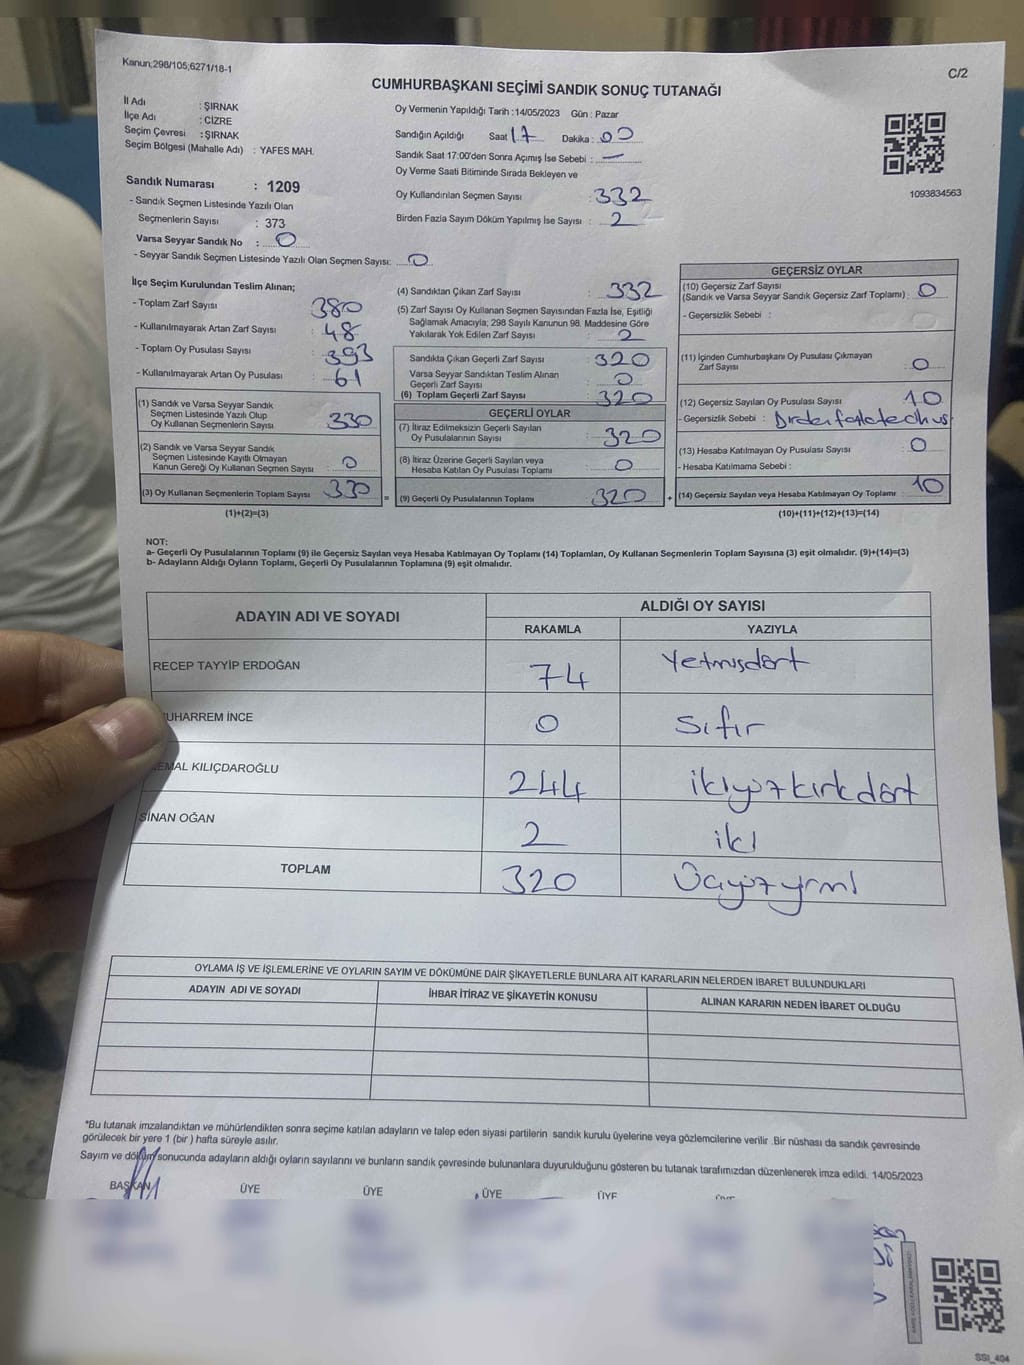 Kanun;298/105;6271/18-1
C/2
CUMHURBAŞKANI SEÇİMİ SANDIK SONUÇ TUTANAĞI
İl Adı : ŞIRNAK
İlçe Adı : CİZRE
Seçim Çevresi : ŞIRNAK
Seçim Bölgesi (Mahalle Adı) : YAFES MAH.
Oy Vermenin Yapıldığı Tarih : 14/05/2023 Gün : Pazar
Sandığın Açıldığı Saat 17 Dakika : 00
Sandık Saat 17:00'den Sonra Açımış İse Sebebi : —
Oy Verme Saati Bitiminde Sırada Bekleyen ve
Oy Kullandırılan Seçmen Sayısı : 332
Birden Fazla Sayım Döküm Yapılmış İse Sayısı : 2
1093834563
Sandık Numarası : 1209
- Sandık Seçmen Listesinde Yazılı Olan
Seçmenlerin Sayısı : 373
Varsa Seyyar Sandık No : 0
- Seyyar Sandık Seçmen Listesinde Yazılı Olan Seçmen Sayısı: 0
İlçe Seçim Kurulundan Teslim Alınan;
- Toplam Zarf Sayısı : 380
- Kullanılmayarak Artan Zarf Sayısı : 48
- Toplam Oy Pusulası Sayısı : 393
- Kullanılmayarak Artan Oy Pusulası : 61
(1) Sandık ve Varsa Seyyar Sandık
Seçmen Listesinde Yazılı Olup
Oy Kullanan Seçmenlerin Sayısı : 330
(2) Sandık ve Varsa Seyyar Sandık
Seçmen Listesinde Kayıtlı Olmayan
Kanun Gereği Oy Kullanan Seçmen Sayısı : 0
(3) Oy Kullanan Seçmenlerin Toplam Sayısı : 330
(1)+(2)=(3)
(4) Sandıktan Çıkan Zarf Sayısı : 332
(5) Zarf Sayısı Oy Kullanan Seçmen Sayısından Fazla İse, Eşitliği
Sağlamak Amacıyla; 298 Sayılı Kanunun 98. Maddesine Göre
Yakılarak Yok Edilen Zarf Sayısı : 2
Sandıkta Çıkan Geçerli Zarf Sayısı : 320
Varsa Seyyar Sandıktan Teslim Alınan
Geçerli Zarf Sayısı : 0
(6) Toplam Geçerli Zarf Sayısı : 320
GEÇERLİ OYLAR
(7) İtiraz Edilmeksizin Geçerli Sayılan
Oy Pusulalarının Sayısı : 320
(8) İtiraz Üzerine Geçerli Sayılan veya
Hesaba Katılan Oy Pusulası Toplamı : 0
= (9) Geçerli Oy Pusulalarının Toplamı : 320 +
GEÇERSİZ OYLAR
(10) Geçersiz Zarf Sayısı
(Sandık ve Varsa Seyyar Sandık Geçersiz Zarf Toplamı) : 0
- Geçersizlik Sebebi :
(11) İçinden Cumhurbaşkanı Oy Pusulası Çıkmayan
Zarf Sayısı : 0
(12) Geçersiz Sayılan Oy Pusulası Sayısı : 10
- Geçersizlik Sebebi :
(13) Hesaba Katılmayan Oy Pusulası Sayısı : 0
- Hesaba Katılmama Sebebi :
(14) Geçersiz Sayılan veya Hesaba Katılmayan Oy Toplamı : 10
(10)+(11)+(12)+(13)=(14)
NOT:
a- Geçerli Oy Pusulalarının Toplamı (9) ile Geçersiz Sayılan veya Hesaba Katılmayan Oy Toplamı (14) Toplamları, Oy Kullanan Seçmenlerin Toplam Sayısına (3) eşit olmalıdır. (9)+(14)=(3)
b- Adayların Aldığı Oyların Toplamı, Geçerli Oy Pusulalarının Toplamına (9) eşit olmalıdır.
ADAYIN ADI VE SOYADI
ALDIĞI OY SAYISI
RAKAMLA YAZIYLA
RECEP TAYYİP ERDOĞAN 74 Yetmişdört
UHARREM İNCE 0 sıfır
EMAL KILIÇDAROĞLU 244 ikiyüzkırkdört
SİNAN OĞAN 2 iki
TOPLAM 320 Üçyüzyirmi
OYLAMA İŞ VE İŞLEMLERİNE VE OYLARIN SAYIM VE DÖKÜMÜNE DAİR ŞİKAYETLERLE BUNLARA AİT KARARLARIN NELERDEN İBARET BULUNDUKLARI
ADAYIN ADI VE SOYADI İHBAR İTİRAZ VE ŞİKAYETİN KONUSU ALINAN KARARIN NEDEN İBARET OLDUĞU
*Bu tutanak imzalandıktan ve mühürlendikten sonra seçime katılan adayların ve talep eden siyasi partilerin sandık kurulu üyelerine veya gözlemcilerine verilir .Bir nüshası da sandık çevresinde
görülecek bir yere 1 (bir ) hafta süreyle asılır.
Sayım ve döküm sonucunda adayların aldığı oyların sayılarını ve bunların sandık çevresinde bulunanlara duyurulduğunu gösteren bu tutanak tarafımızdan düzenlenerek imza edildi. 14/05/2023
BAŞKAN ÜYE ÜYE ÜYE ÜYE
SSI_404